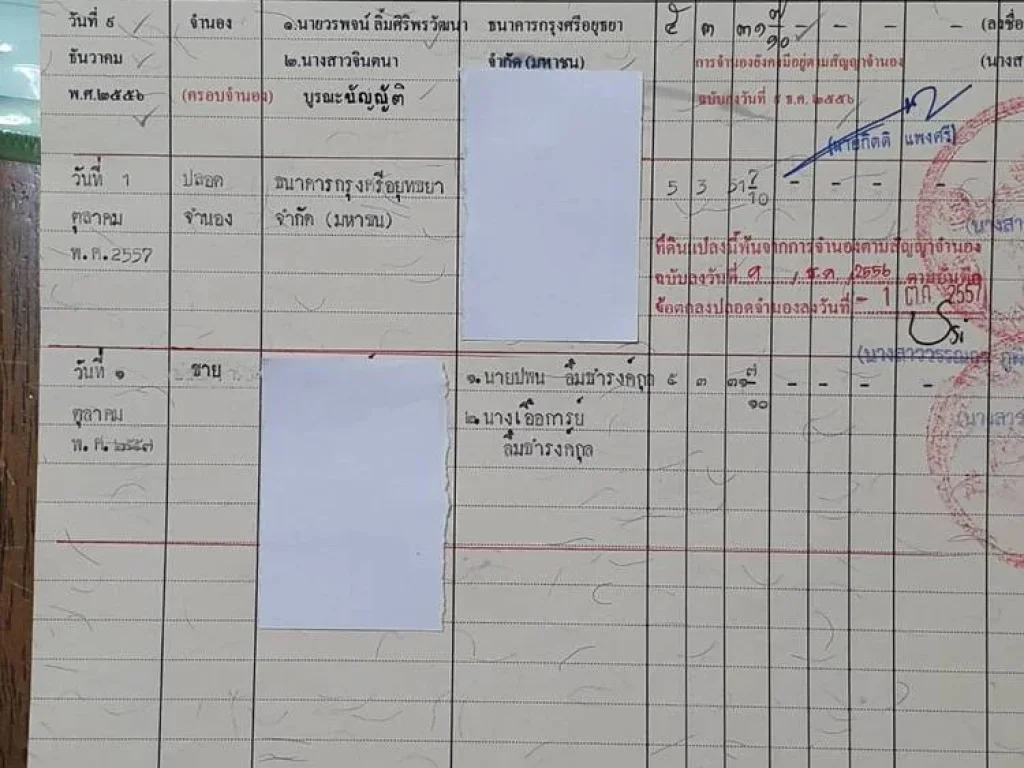 วันที่ ๙ จำนอง ๑.นายวรพจน์ ลิ้มศิริพรวัฒนา ธนาคารกรุงศรีอยุธยา ๕ ๓ ๓๑ ๗/๑๐ - - - - (ลงชื่อ
ธันวาคม ๒.นางสาวจินตนา จำกัด (มหาชน) การจำนองยังคงมีอยู่ตามสัญญาจำนอง (นางส
พ.ศ.๒๕๕๖ (ครอบจำนอง) บูรณะบัญญัติ ฉบับลงวันที่ ๙ ธ.ค. ๒๕๕๖
(นายกิตติ แพงศรี)
วันที่ 1 ปลอด ธนาคารกรุงศรีอยุทธยา 5 3 31 7/10 - - - -
ตุลาคม จำนอง จำกัด (มหาชน) (นางสา
พ.ศ.2557 ที่ดินแปลงนี้พ้นจากการจำนองตามสัญญาจำนอง
ฉบับลงวันที่ ๙ / ธ.ค. / 2556 ตามบันทึก
ข้อตกลงปลอดจำนองลงวันที่ - 1 ต.ค. 2557
(นางสาววรรณอร ภูผ
วันที่ ๑ ขาย ๑.นายปพน ลิ้มธำรงค์กุล ๕ ๓ ๓๑ ๗/๑๐ - - - -
ตุลาคม ๒.นางเอื้อการย์ (นางสาร
พ.ศ.๒๕๕๗ ลิ้มธำรงค์กุล